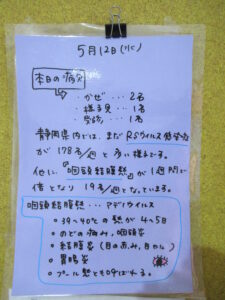 5月12日(水)
本日の病欠
・かぜ…2名
・様子見…1名
・登園…1名
静岡県内では、まだRSウイルス感染症
が178名/週と多い様子です。
他に「咽頭結膜熱」が1週間で
倍となり19名/週となっています。
咽頭結膜熱…アデノウイルス
・39〜40℃の熱が4〜5日
・のどの痛み,咽頭炎
・結膜炎(目の赤み,目やに)
・胃腸炎
・プール熱とも呼ばれる。